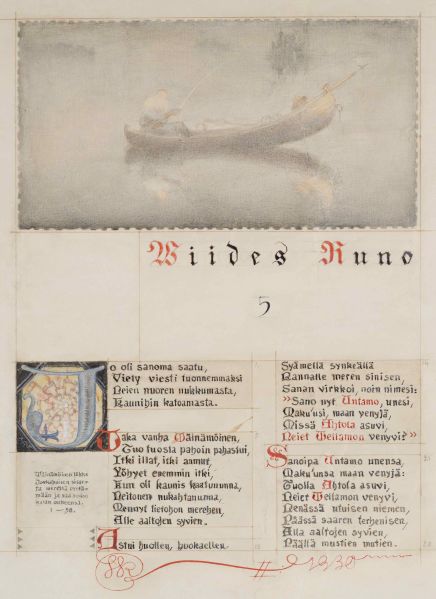 Wiides Runo
5
Jo oli sanoma saatu,
Viety viesti tuonnemmaksi
Neien nuoren nukkumasta,
Kaunihin katoamasta.
Vaka vanha Väinämöinen,
Tuo tuosta pahoin pahastui,
Itki illat, itki aamut,
Yöhyet enemmin itki,
Kun oli kaunis kaatununna,
Neitonen nukahtanunna,
Mennyt lietohon merehen,
Alle aaltojen syvien.
Astui huollen, huokaellen
Wäinämöinen lähtee
Joukahaisen sisar-
ta merestä onki-
maan ja saa
kalan onkeensa.
1 — 58.
Syämellä synkeällä
Rannalle meren sinisen,
Sanan virkkoi, noin nimesi:
"Sano nyt Untamo, unesi,
Maku'usi, maan venyjä,
Missä Ahtola asuvi,
Neiet Vellamon venyvi?"
Sanoipa Untamo unensa,
Maku'unsa maan venyjä:
"Tuolla Ahtola asuvi,
Neiet Vellamon venyvi,
Nenässä utuisen niemen,
Päässä saaren terhenisen,
Alla aaltojen syvien,
Päällä mustien mutien.
II 1930